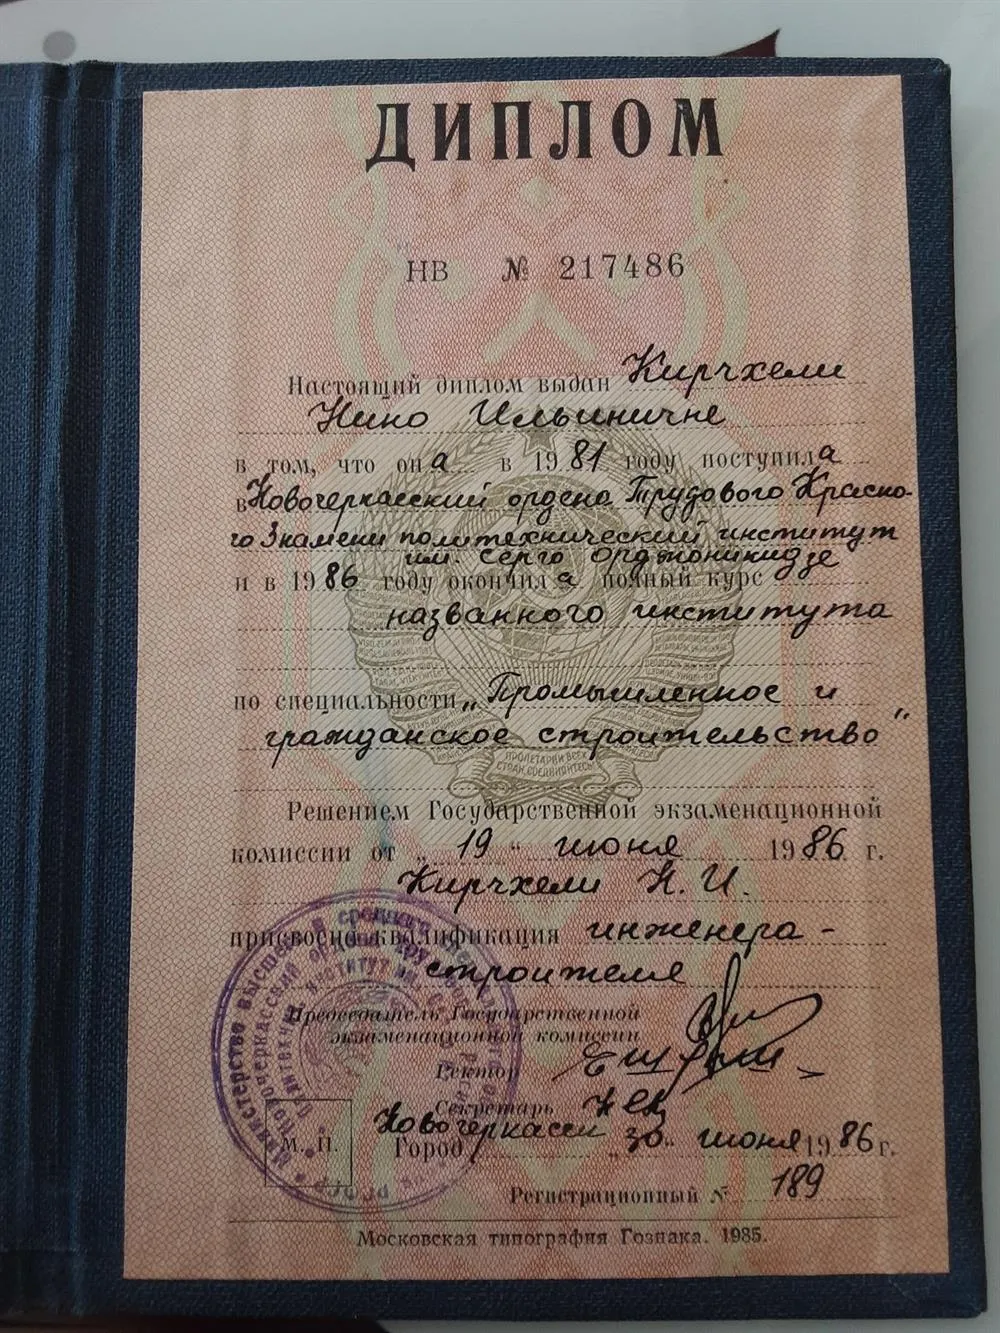 ДИПЛОМ
НВ № 217486
Настоящий диплом выдан Кирчхели
Нино Ильиничне
в том, что она в 1981 году поступила
в Новочеркасский ордена Трудового Красно-
го Знамени политехнический институт
им. Серго Орджоникидзе
и в 1986 году окончила полный курс
названного института
по специальности „Промышленное и
гражданское строительство"
Решением Государственной экзаменационной
комиссии от „19" июня 1986 г.
Кирчхели Н. И.
присвоена квалификация инженера-
строителя
Председатель Государственной
экзаменационной комиссии
Ректор
Секретарь
Город Новочеркасск 30 июня 1986 г.
М. П.
Регистрационный № 189
Московская типография Гознака. 1985.
ПРОЛЕТАРИИ ВСЕХ
СТРАН, СОЕДИНЯЙТЕСЬ!